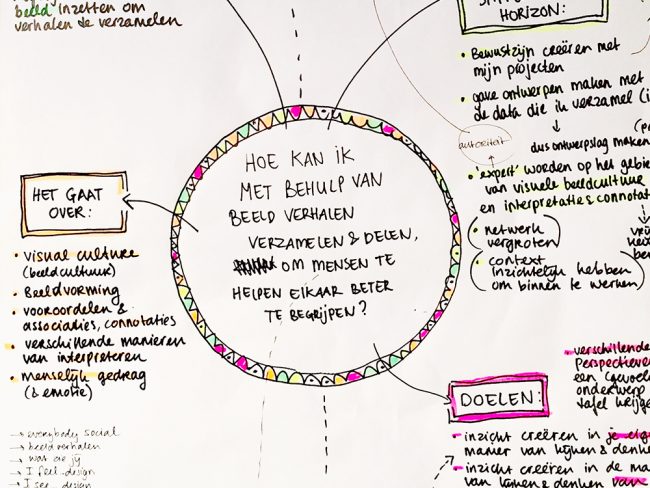 beeld inzetten om
verhalen te verzamelen
HORIZON:
• Bewustzijn creëren met
mijn projecten
• gave ontwerpen maken met
de data die ik verzamel
dus ontwerpslag maken
autoriteit
• 'expert' worden op het gebie
van visuele beeldcultuur
en interpretaties & connotat
• netwerk
vergroten
• context
inzichtelijk hebben
om binnen te werken
HOE KAN IK
MET BEHULP VAN
BEELD VERHALEN
VERZAMELEN & DELEN,
OM MENSEN TE
HELPEN ELKAAR BETER
TE BEGRIJPEN?
HET GAAT
OVER:
• visual culture
(beeldcultuur)
• Beeldvorming
• vooroordelen &
associaties, connotaties
• verschillende manieren
van interpreteren
• menselijk gedrag
(& emotie)
→ everybody social
→ beeldverhalen
→ wat zie jij
→ I feel.. design
→ I see... design
DOELEN:
- verschillende
perspectieve
een (gevoel
onderwerp
tafel krijge
- inzicht creëren in je eige
manier van kijken & denke
- inzicht creëren in de ma
van kijken & denken van